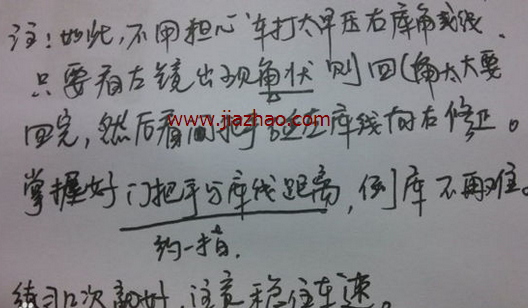 注：如此，不用担心车打太早压右库角或线
只要看左镜出现角状则回(角太大要
www.jiazhao.com
回完，然后看门把手与左库线向左修正。
掌握好门把手与库线距离，倒库不再难。
约一拍
练习几次就好，注意稳住车速。